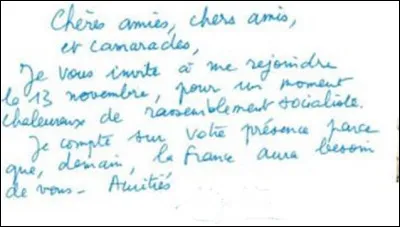 Chères amies, chers amis,
et camarades,
Je vous invite à me rejoindre
le 13 novembre, pour un moment
chaleureux de rassemblement socialiste.
Je compte sur votre présence parce
que, demain, la France aura besoin
de vous - Amitiés